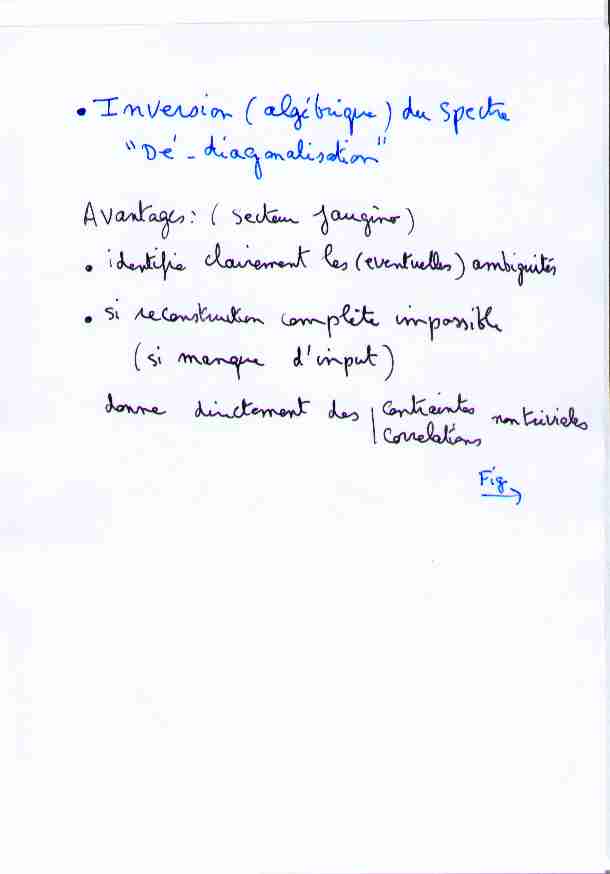 • Inversion (algébrique) du spectre
"Dé-diagonalisation"
Avantages: (secteur jaugino)
• identifie clairement les (eventuelles) ambiguités
• si reconstruction complète impossible
(si manque d'input)
donne directement des | contraintes non triviales
| correlations
Fig →